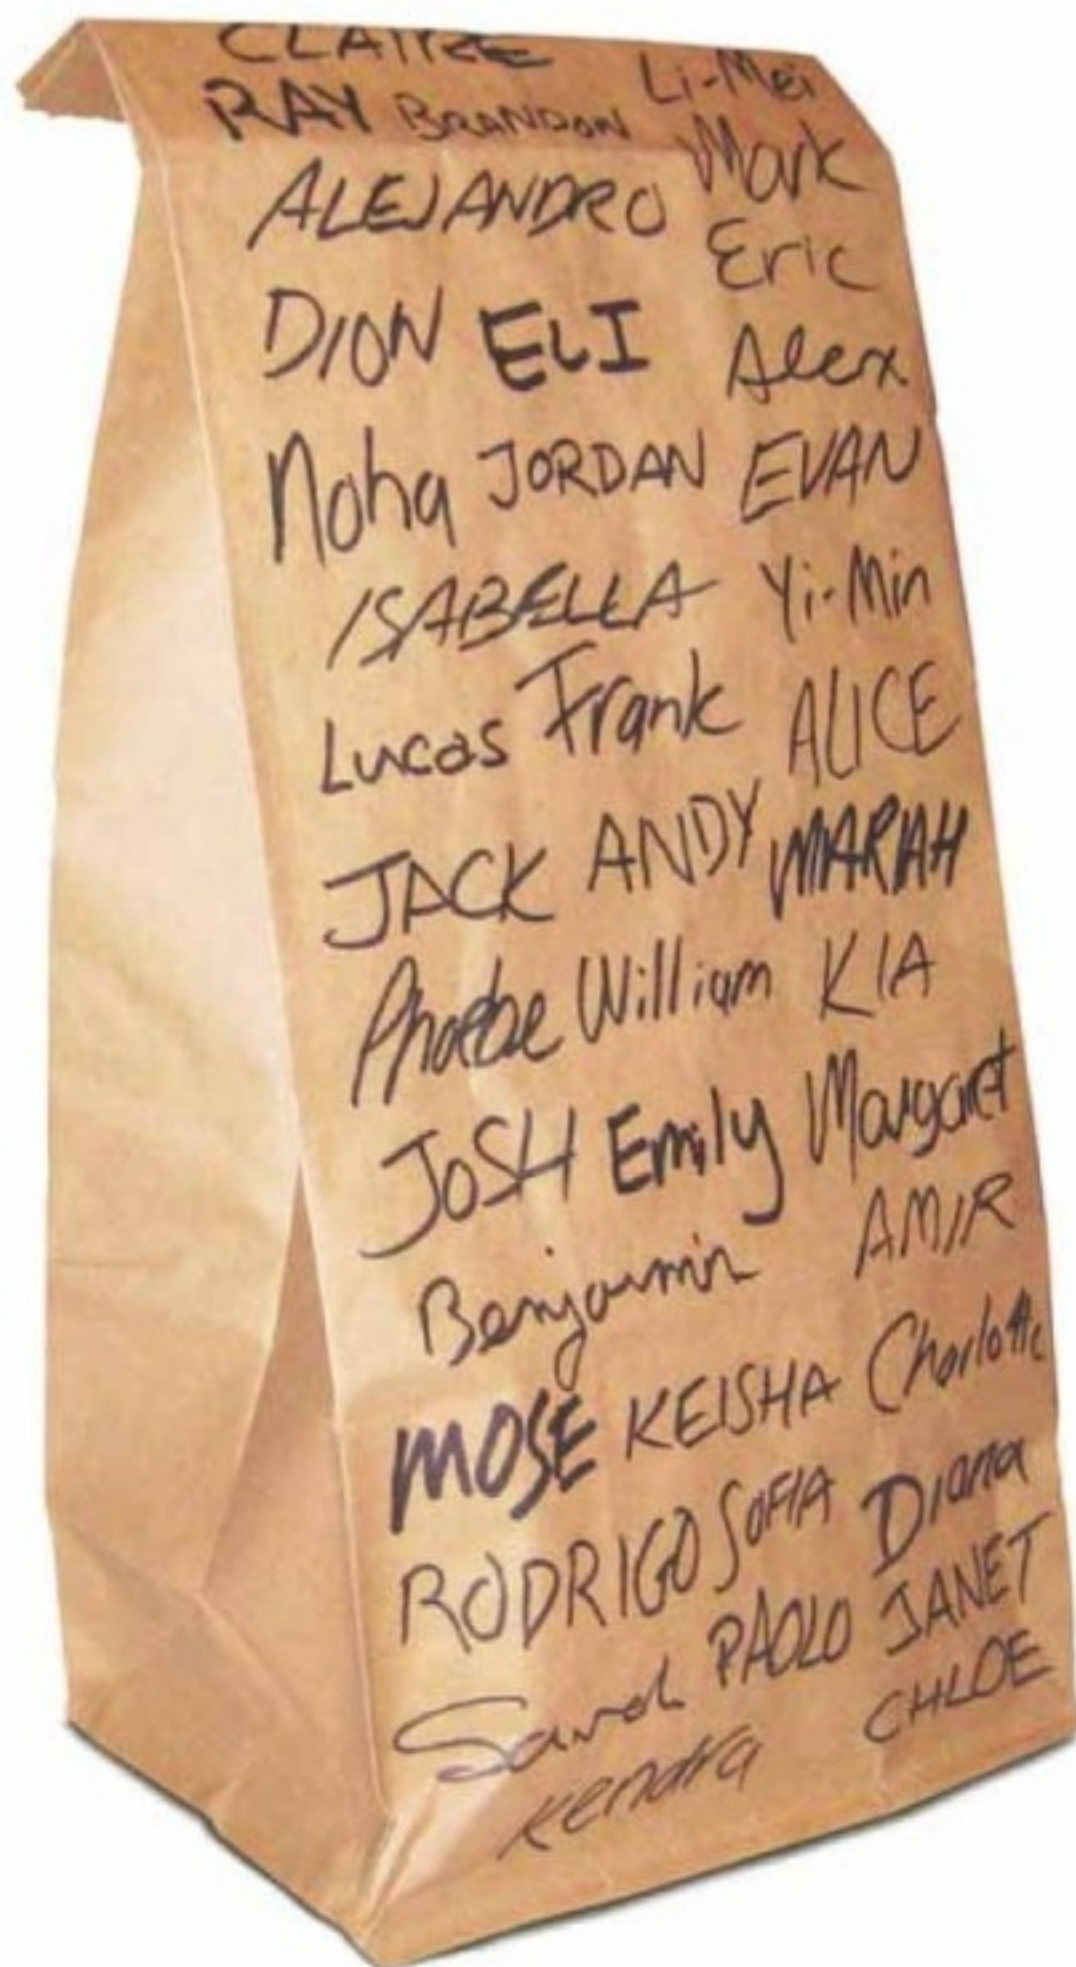 CLAIRE Li-Mei
RAY BRANDON Mark
ALEJANDRO Eric
DION ELI Alex
Noha JORDAN EVAN
ISABELLA Yi-Min
Lucas Frank ALICE
JACK ANDY MARIAH
Phoebe William KIA
JOSH Emily Margaret
Benjamin AMIR
MOSE KEISHA Charlotte
RODRIGO SOFIA Diana
Sarah PAOLO JANET
Kendra CHLOE